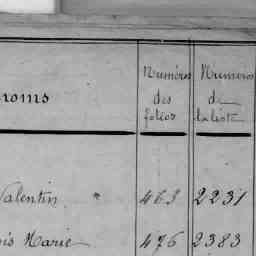 Numéros Numéros
noms des de
folios la liste
Valentin " 463 2231
Marie 476 2383